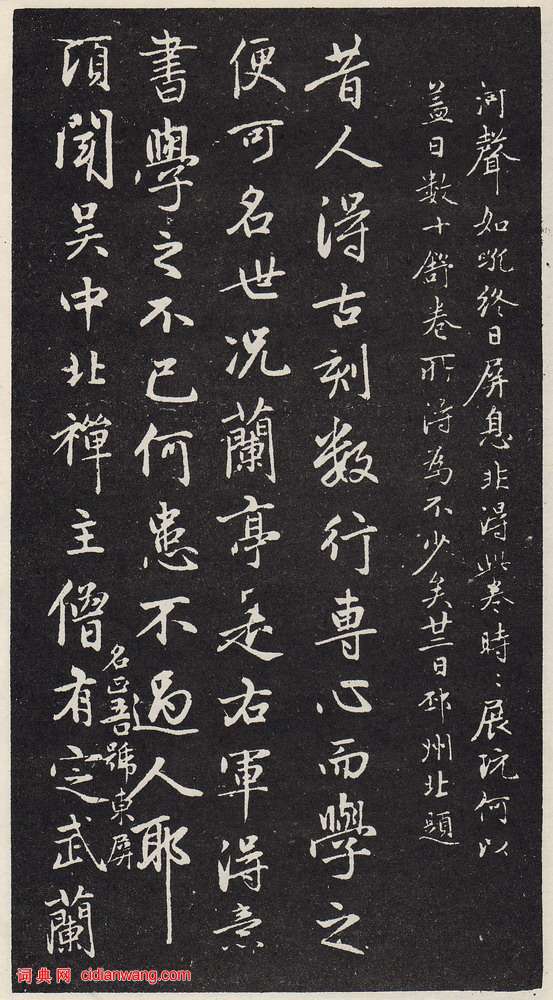 河聲如吼終日屏息非得此卷時〻展玩何以
蓋日數十舒卷所得為不少矣廿二日邳州北題
昔人得古刻數行專心而學之
便可名世况蘭亭是右軍得意
書學之不已何患不過人耶
頃聞吳中北禪主僧有定武蘭
名正吾號東屏
词典网 cidianwang.com